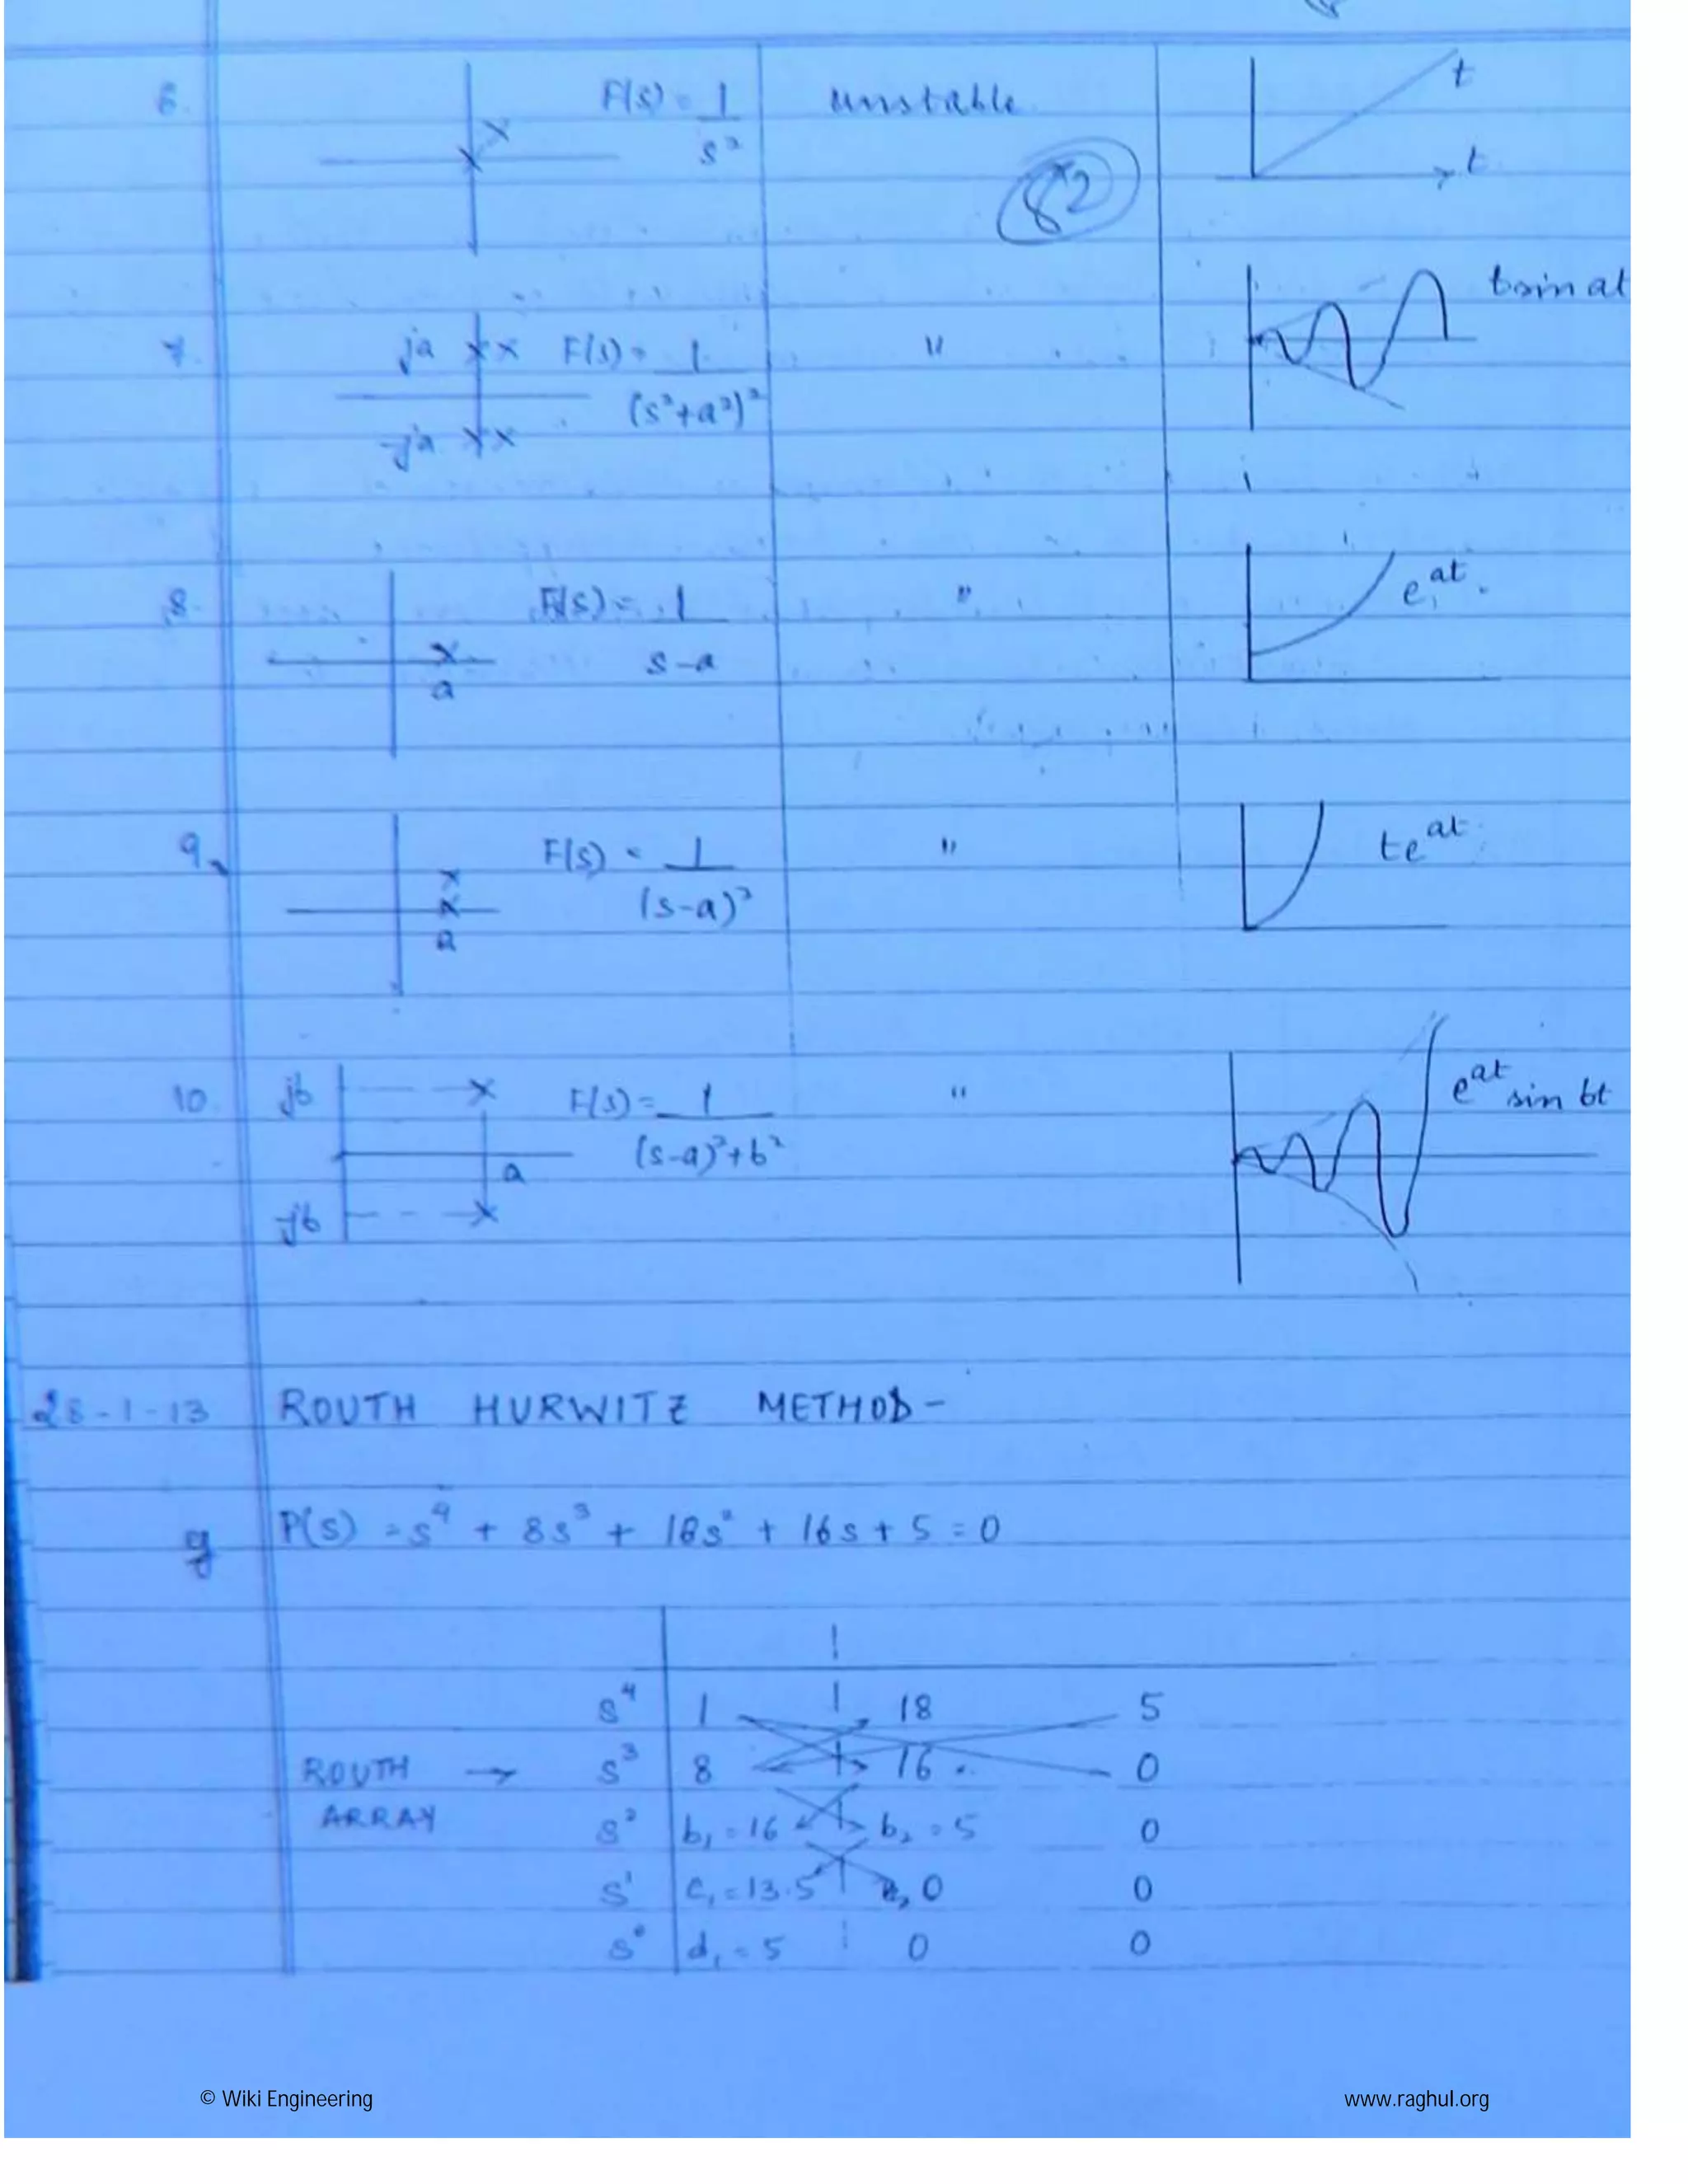 6. F(s) = 1/s² unstable t
t
82
7. ja xx F(s) = 1/(s²+a²)² " t sin at
-ja xx
8. F(s) = 1/s-a " e^at
a
9. F(s) = 1/(s-a)² " te^at
a
10. jb F(s) = 1/(s-a)²+b² " e^at sin bt
a
-jb
28-1-13 ROUTH HURWITZ METHOD-
P(s) = s⁴ + 8s³ + 18s² + 16s + 5 = 0
s⁴ 1 18 5
ROUTH → s³ 8 16 0
ARRAY s² b₁=16 b₂=5 0
s¹ c₁=13.5 0 0
s⁰ d₁=5 0 0
© Wiki Engineering www.raghul.org